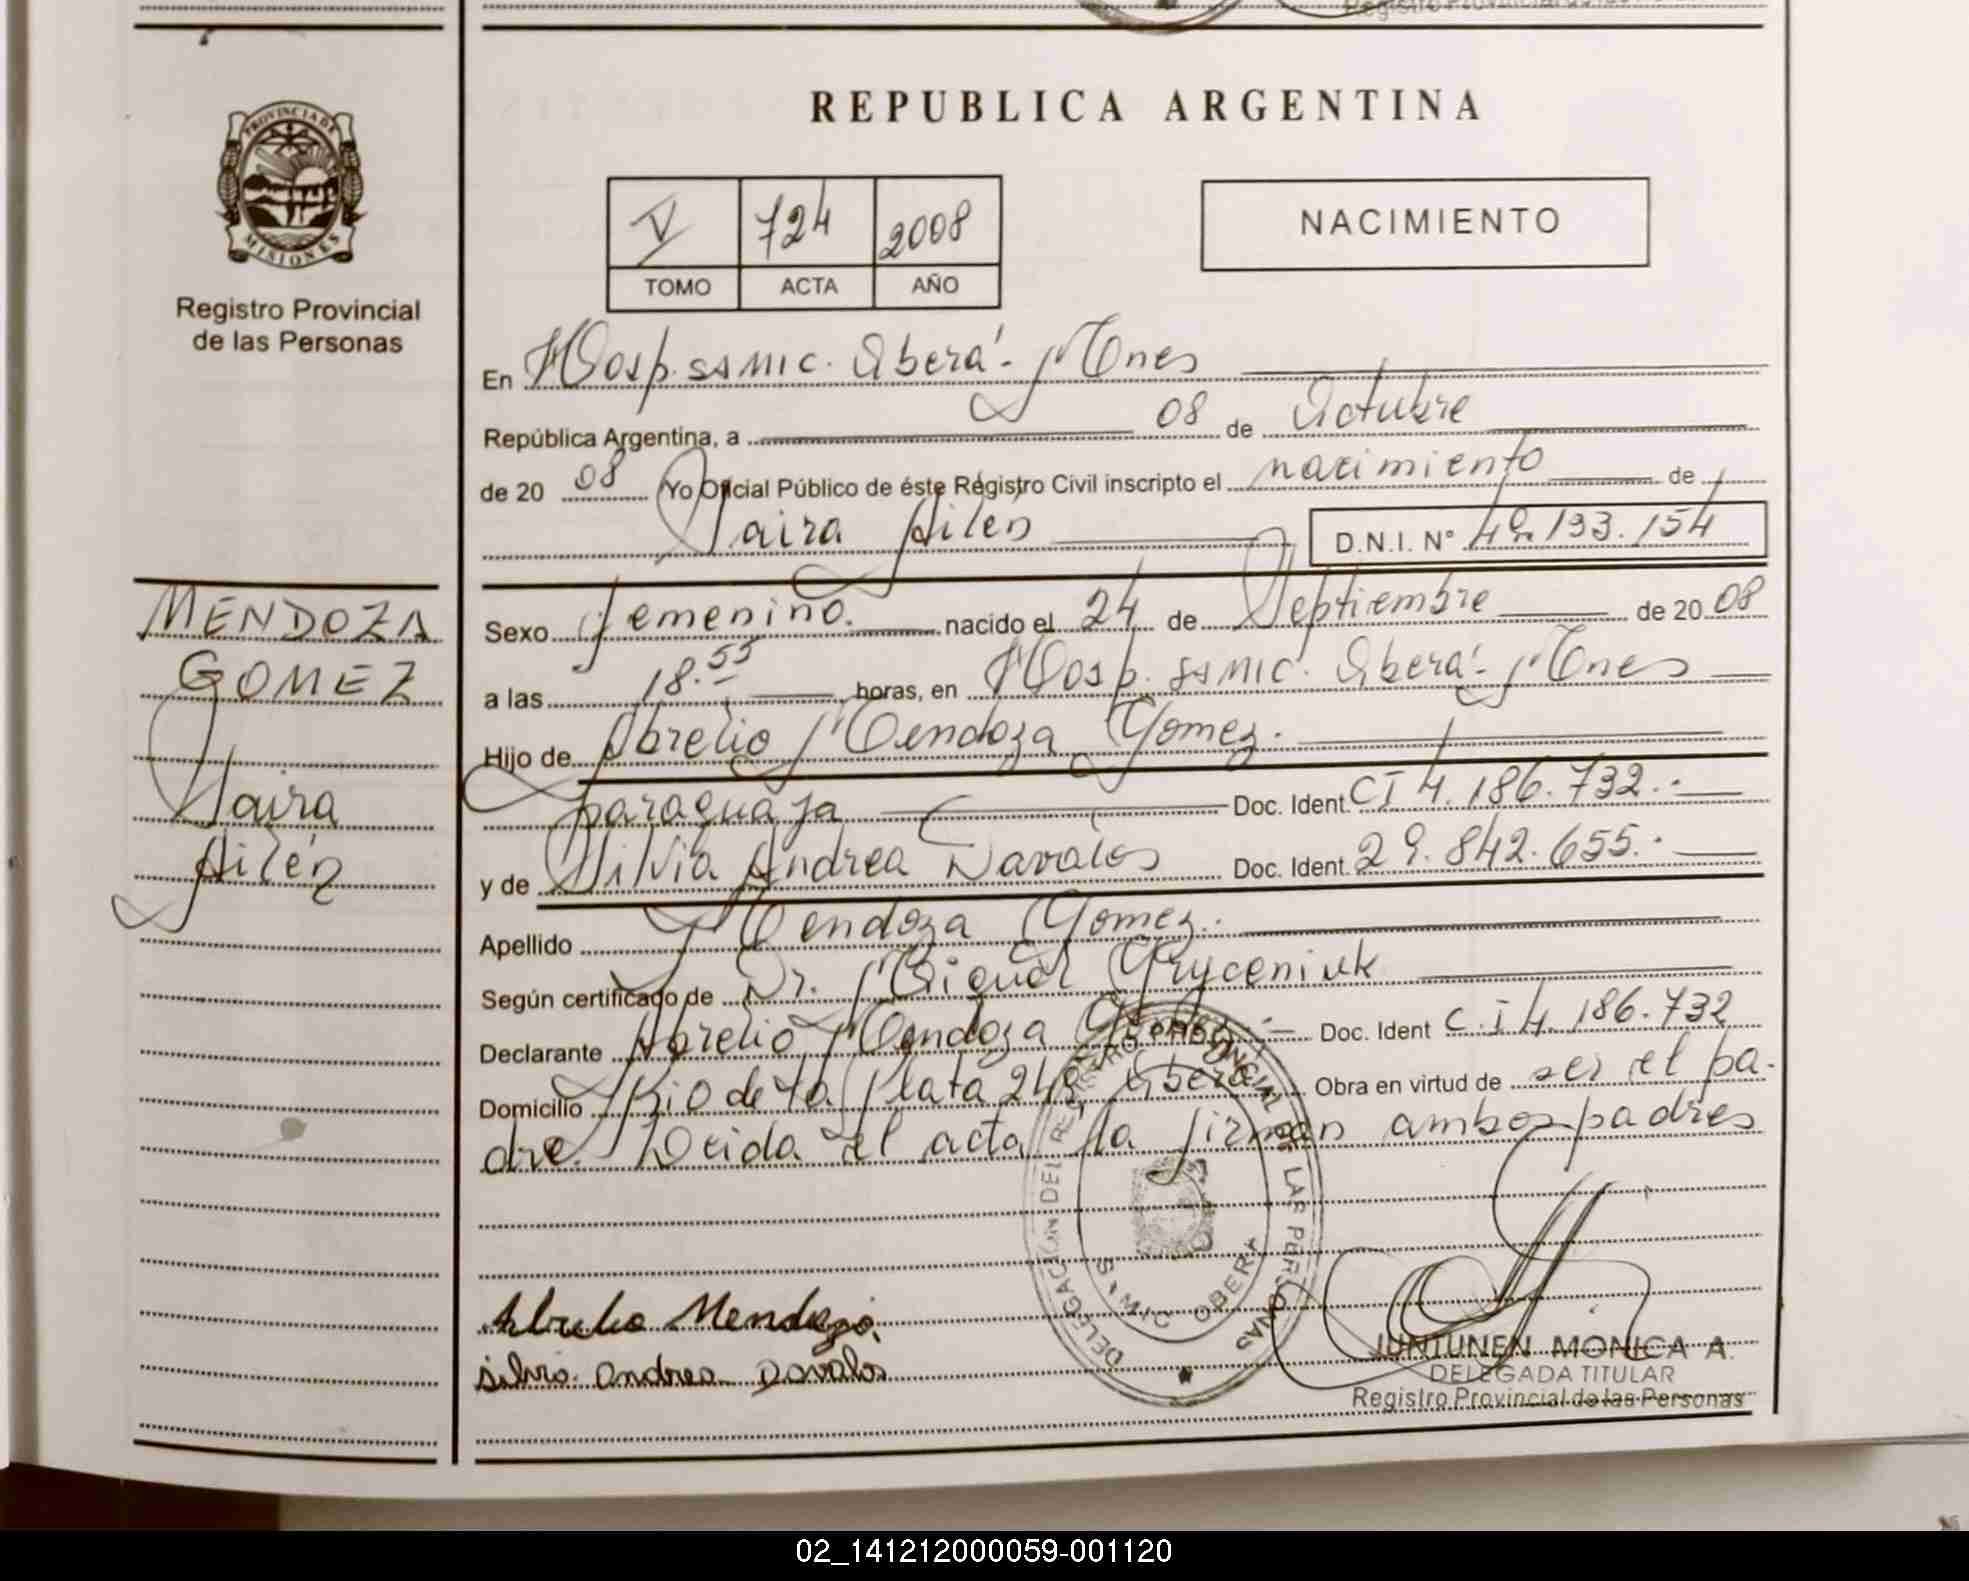 Registro Provincial de las
REPUBLICA ARGENTINA
PROVINCIA DE
MISIONES
Registro Provincial
de las Personas
V 724 2008
TOMO ACTA AÑO
NACIMIENTO
En Hosp. ssmic. Oberá - Mnes
República Argentina, a 08 de Octubre
de 20 08 Yo Oficial Público de éste Régistro Civil inscripto el nacimiento de
Naira Ailén D.N.I. N° 49.133.154
MENDOZA
GOMEZ
Naira
Ailén
Sexo femenino. nacido el 24 de Septiembre de 20 08
a las 18.55 horas, en Hosp. ssmic. Oberá - Mnes
Hijo de Abrelio Mendoza Gomez.
paraguaya Doc. Ident. CI 4.186.732.-
y de Silvia Andrea Davalos Doc. Ident. 29.842.655.-
Apellido Mendoza Gomez.
Según certificado de Dr. Miguel Gryceniuk
Declarante Abrelio Mendoza Doc. Ident C.I 4.186.732
Domicilio Rio de la Plata 248 Oberá Obra en virtud de ser el pa-
dre. Leida el acta la firman ambos padres
DELEGACION DEL REGISTRO PROVINCIAL DE LAS PERSONAS
OBERA
Abrelio Mendoza.
silvia andrea Davalos
JUNTUNEN MONICA A.
DELEGADA TITULAR
Registro Provincial de las Personas
02_141212000059-001120